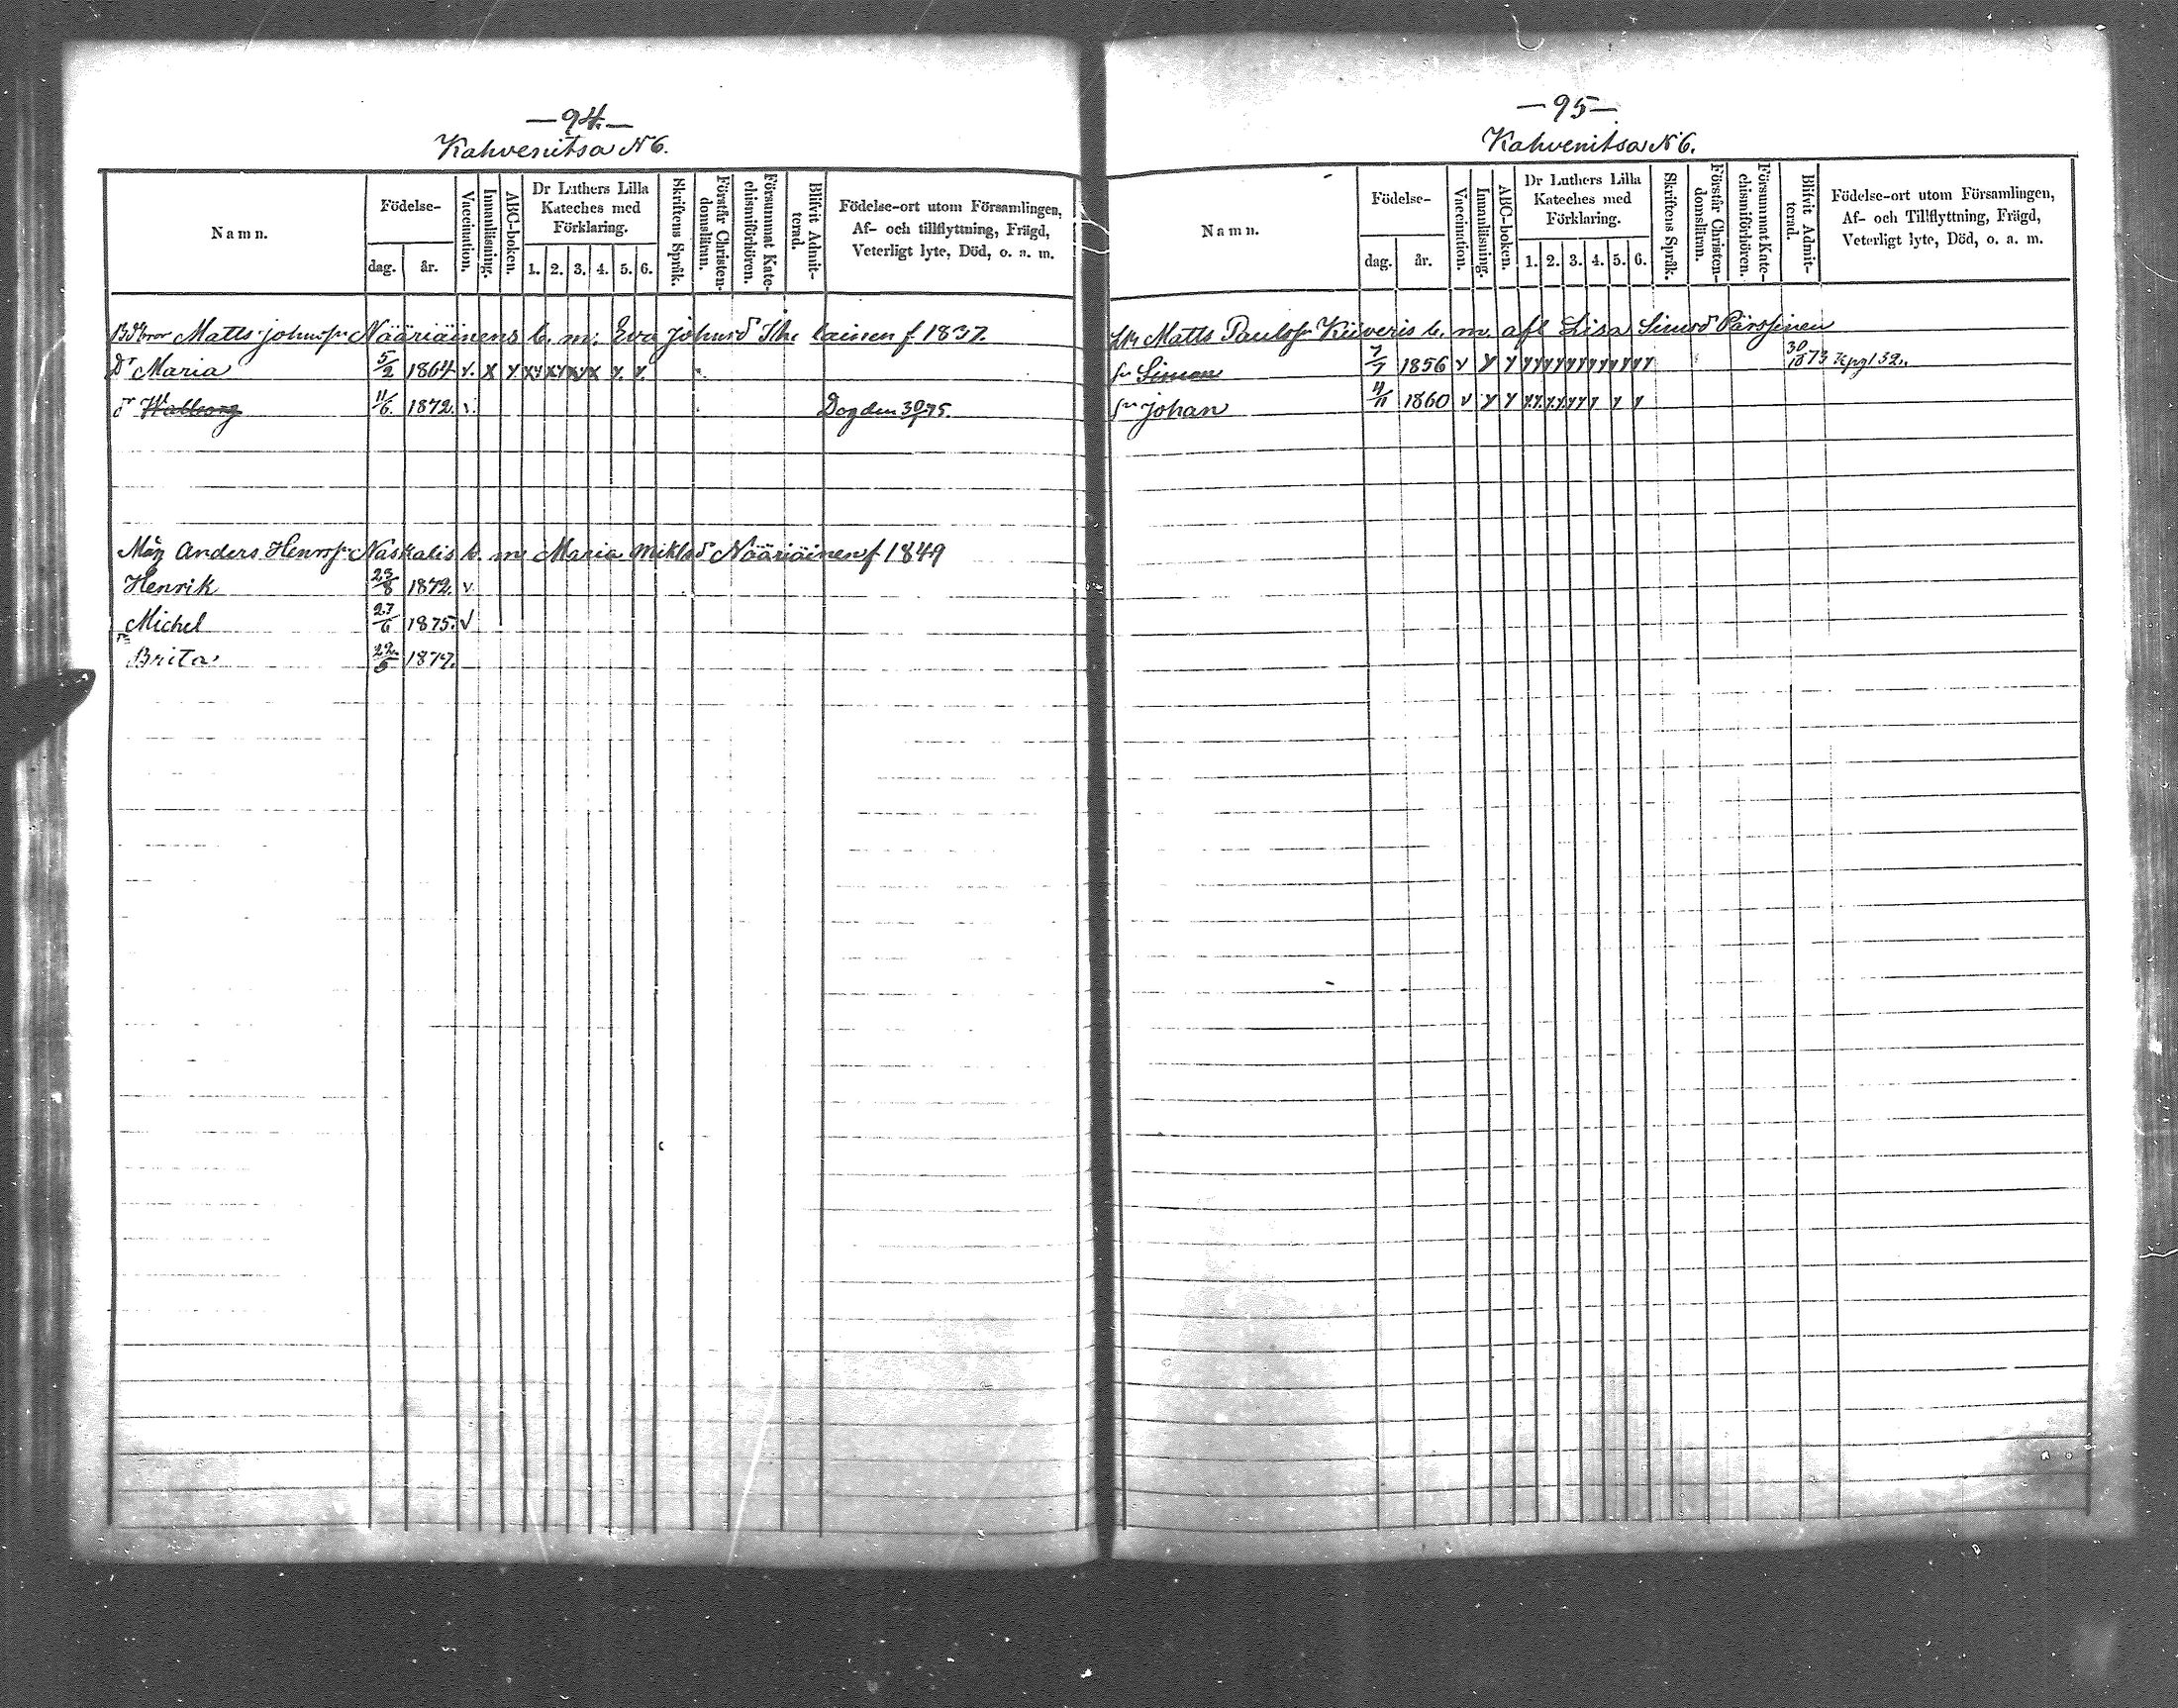 —94.—
Kahvenitsa N 6.
Namn.
Födelse-
dag.
år.
Vaccination.
Innanläsning.
ABC-boken.
Dr Luthers Lilla
Kateches med
Förklaring.
1. 2. 3. 4. 5. 6.
Skriftens Språk.
Förstår Christen-
domsläran.
Försummat Kate-
chismiförhören.
Blifvit Admit-
terad.
Födelse-ort utom Församlingen,
Af- och tillflyttning, Frägd,
Veterligt lyte, Död, o. a. m.
Matts Johnsn Nääriäinens b. m. Eva Johnsd f 1837.
Dr Maria 5/2 1864 v. x y xy xy xv x y. y.
dr Walborg 11/6. 1872. v. Dog den 30/7 75.
Måg Anders Henrsn Naskalis b. m. Maria Miklsd Nääriäinen f 1849
Henrik 23/8 1872. v
Michel 27/6 1875. v
Brita 22/5 1877.
—95—
Kahvenitsa N 6.
Namn.
Födelse-
dag.
år.
Vaccination.
Innanläsning.
ABC-boken.
Dr Luthers Lilla
Kateches med
Förklaring.
1. 2. 3. 4. 5. 6.
Skriftens Språk.
Förstår Christen-
domsläran.
Försummat Kate-
chismiförhören.
Blifvit Admit-
terad.
Födelse-ort utom Församlingen,
Af- och Tillflyttning, Frägd,
Veterligt lyte, Död, o. a. m.
Matts Paulsn Kiiveris b. m. afl Lisa Simsd Pärssinen
sn Simon 7/7 1856 v y y yy yy yy yy yy yy 30/10 73
sn Johan 4/11 1860 v y y y.y. y.y yy y y y